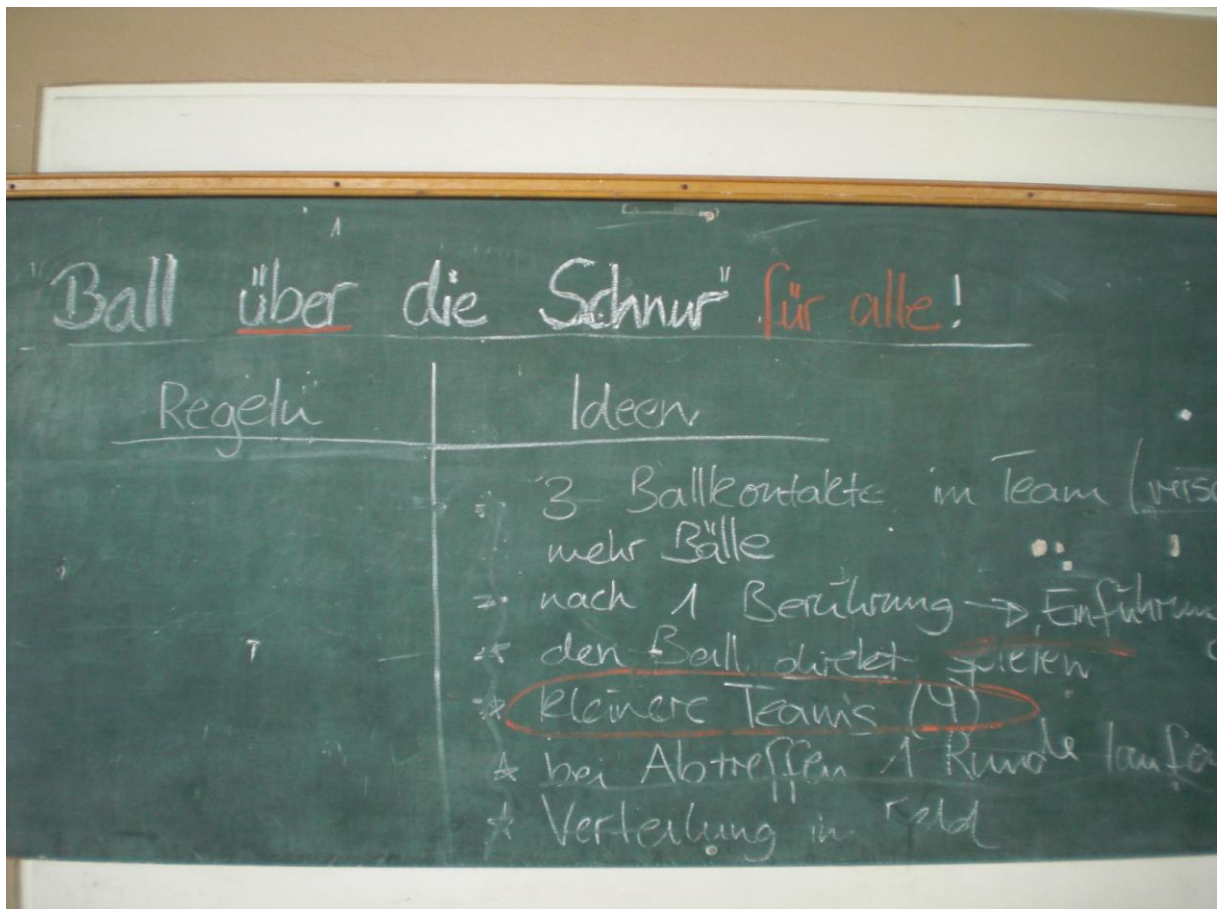 "Ball über die Schnur" für alle!
Regeln Ideen
3 Ballkontakte im Team (versc
mehr Bälle
nach 1 Berührung → Einführung
den Ball direkt spielen
* kleinere Teams (4)
* bei Abtreffen 1 Runde laufe
* Verteilung im Feld